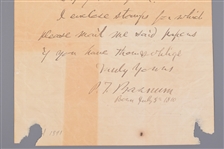 I enclose stamps for which
please mail me said papers
& you have thus oblige
Truly Yours
P. T. Barnum
Born July 5. 1810